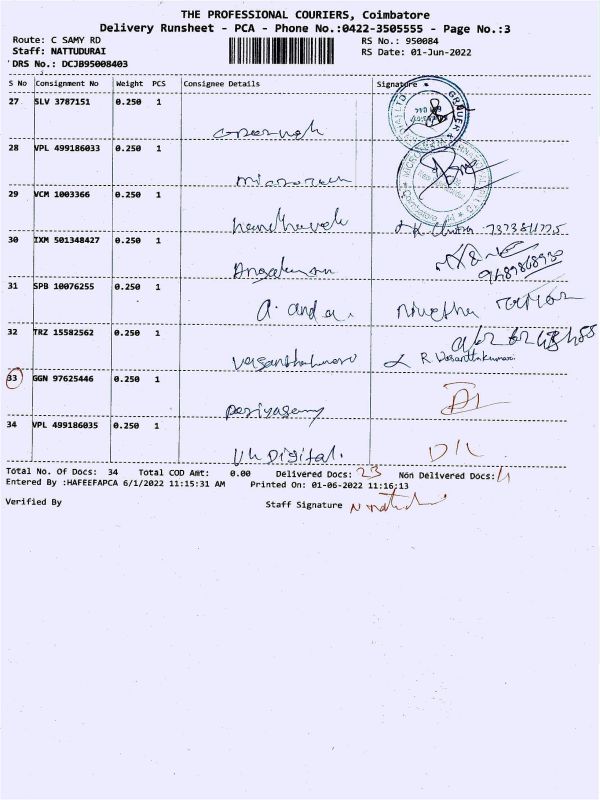 THE PROFESSIONAL COURIERS, Coimbatore
Delivery Runsheet - PCA - Phone No.:0422-3505555 - Page No.:3
Route: C SAMY RD
RS No.: 950084
Staff: NATTUDURAI
RS Date: 01-Jun-2022
DRS No.: DCJB95008403
S No Consignment No Weight PCS Consignee Details Signature
27 SLV 3787151 0.250 1
28 VPL 499186033 0.250 1
29 VCM 1003366 0.250 1
30 IXM 501348427 0.250 1
31 SPB 10076255 0.250 1
A. anda. Nivetha
32 TRZ 15582562 0.250 1
R Vasanthakumari
33 GGN 97625446 0.250 1
Periyasamy
34 VPL 499186035 0.250 1
Uk Digital. D/L
Total No. Of Docs: 34 Total COD Amt: 0.00 Delivered Docs: 23 Non Delivered Docs: 11
Entered By :HAFEEFAPCA 6/1/2022 11:15:31 AM Printed On: 01-06-2022 11:16:13
Verified By Staff Signature